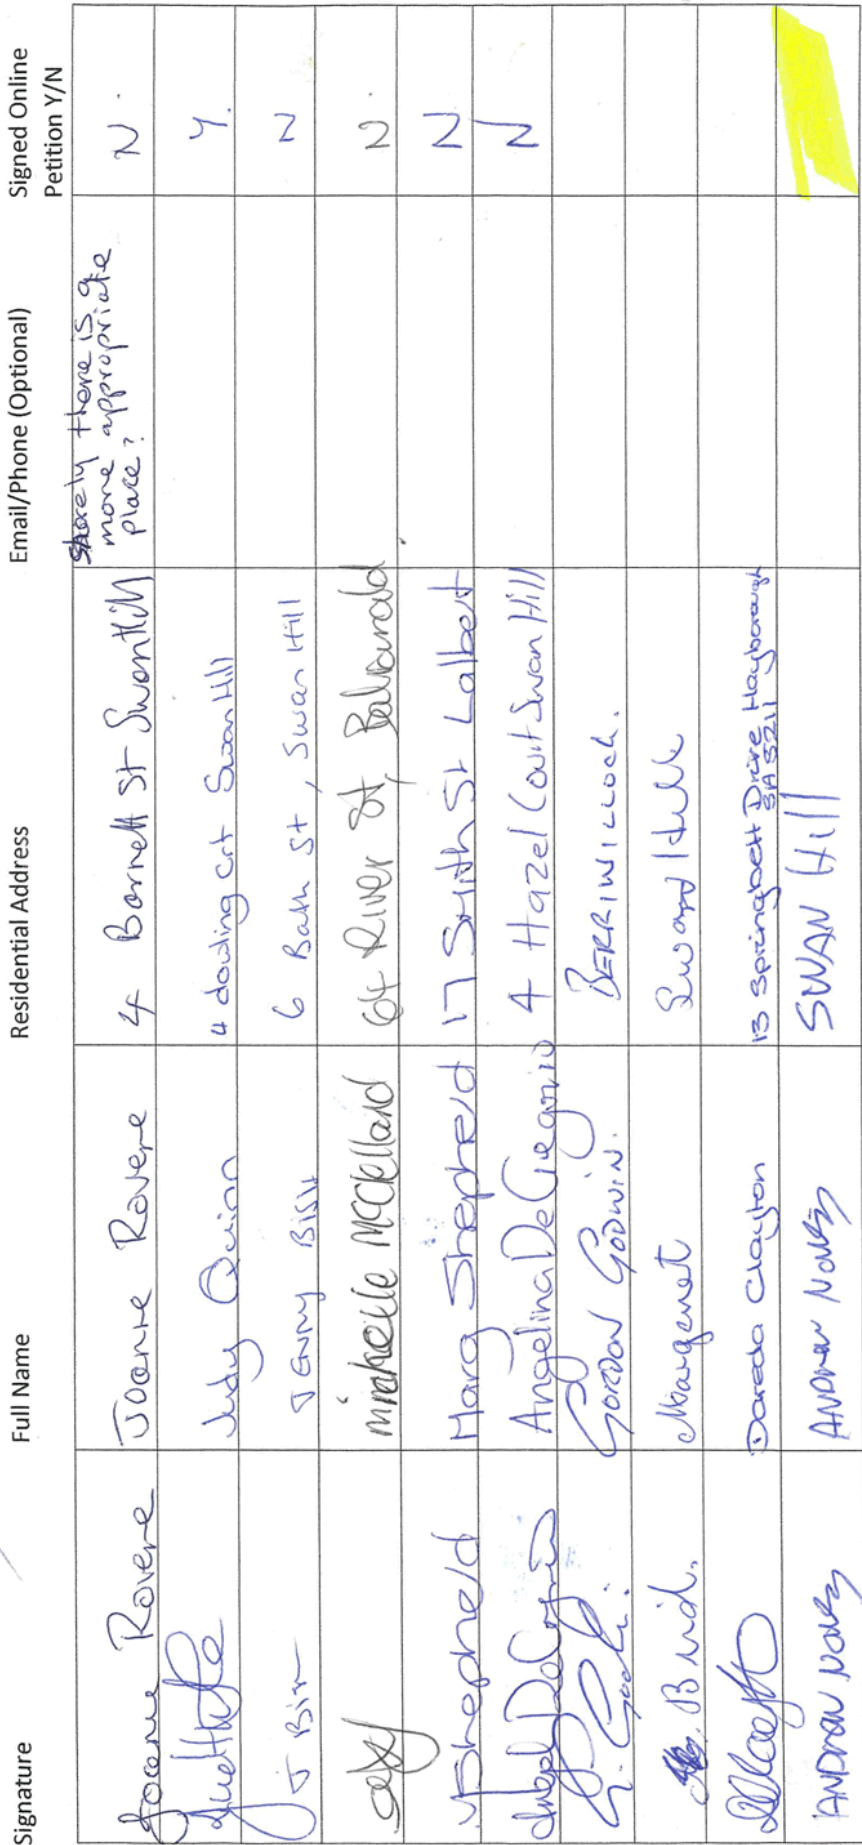 Signature Full Name Residential Address Email/Phone (Optional) Signed Online Petition Y/N
Joanne Rovere Joanne Rovere 4 Barnett St Swan Hill Shorely there is a more appropriate place? N.
Judy Quinn 4 dowling Crt Swan Hill Y.
J Bish JENNY BISH 6 Bath St, Swan Hill N
michelle McClelland 64 River St, Balranald N.
MShepherd Marg Shepherd 17 Smith St Lalbert N
Angelina De Gregorio 4 Hazel Court Swan Hill N
GORDON GODWIN. BERRIWILLOCK.
Bird. Margaret Swan Hill
Dareda Clayton 13 Springbett Drive Hayborough SA 5211
ANDREW ANDREW SWAN Hill